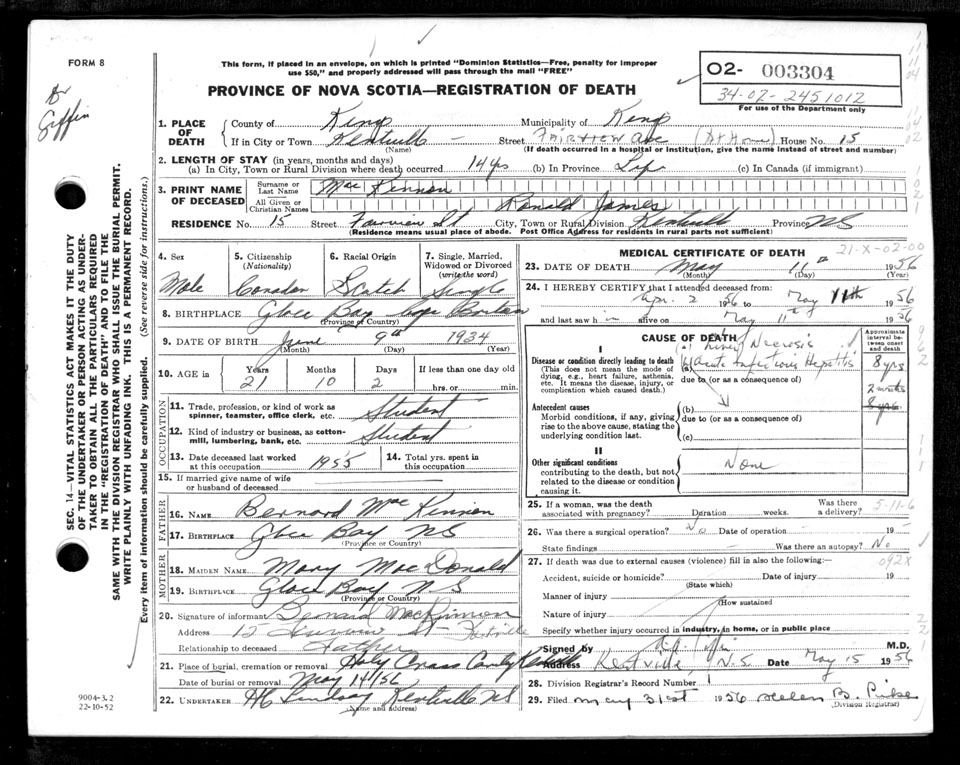 FORM 8
Dr Giffin
This form, if placed in an envelope, on which is printed "Dominion Statistics—Free, penalty for improper
use $50," and properly addressed will pass through the mail "FREE"
PROVINCE OF NOVA SCOTIA—REGISTRATION OF DEATH
02- 003304
34-02-2451012
For use of the Department only
1. PLACE OF DEATH County of Kings Municipality of Kings
If in City or Town Kentville Street Fairview Ave (At Home) House No. 15
(Name) (If death occurred in a hospital or institution, give the name instead of street and number)
2. LENGTH OF STAY (in years, months and days)
(a) In City, Town or Rural Division where death occurred 14 yrs (b) In Province Life (c) In Canada (if immigrant)
3. PRINT NAME OF DECEASED Surname or Last Name Mac Kinnon
All Given or Christian Names Ronald James
RESIDENCE No. 15 Street Fairview St City, Town or Rural Division Kentville Province NS
(Residence means usual place of abode. Post Office Address for residents in rural parts not sufficient)
4. Sex Male
5. Citizenship (Nationality) Canadian
6. Racial Origin Scotch
7. Single, Married, Widowed or Divorced (write the word) Single
8. BIRTHPLACE Glace Bay Cape Breton
(Province or Country)
9. DATE OF BIRTH June 9th 1934
(Month) (Day) (Year)
10. AGE in Years 21 Months 10 Days 2 If less than one day old hrs. or min.
OCCUPATION
11. Trade, profession, or kind of work as spinner, teamster, office clerk, etc. Student
12. Kind of industry or business, as cotton-mill, lumbering, bank, etc. Student
13. Date deceased last worked at this occupation 1955
14. Total yrs. spent in this occupation
15. If married give name of wife or husband of deceased
FATHER
16. NAME Bernard Mac Kinnon
17. BIRTHPLACE Glace Bay NS
(Province or Country)
MOTHER
18. MAIDEN NAME Mary Mac Donald
19. BIRTHPLACE Glace Bay N S
(Province or Country)
20. Signature of informant Bernard MacKinnon
Address 15 Fairview St Kentville
Relationship to deceased Father
21. Place of burial, cremation or removal Holy Cross Kentville
Date of burial or removal May 14/56
22. UNDERTAKER HC Lindsay Kentville NS
(Name and address)
MEDICAL CERTIFICATE OF DEATH
21-X-02-00
23. DATE OF DEATH May 11th 1956
(Month) (Day) (Year)
24. I HEREBY CERTIFY that I attended deceased from:
Apr. 2 1956 to May 11th 1956
and last saw h im alive on May 11th 1956
CAUSE OF DEATH
Approximate interval between onset and death
I
Disease or condition directly leading to death
(This does not mean the mode of dying, e.g., heart failure, asthenia, etc. It means the disease, injury, or complication which caused death.)
Liver Necrosis
(a) Acute Infectious Hepatitis 8 yrs
due to (or as a consequence of) 2 weeks
Antecedent causes
Morbid conditions, if any, giving rise to the above cause, stating the underlying condition last.
(b) 8 yrs
due to (or as a consequence of)
(c)
II
Other significant conditions
contributing to the death, but not related to the disease or condition causing it.
None
25. If a woman, was the death associated with pregnancy? Duration weeks. Was there a delivery?
5-11-6
26. Was there a surgical operation? No Date of operation 19
State findings Was there an autopsy? No
27. If death was due to external causes (violence) fill in also the following:
092X
Accident, suicide or homicide? Date of injury 19
(State which)
Manner of injury
(How sustained
Nature of injury
Specify whether injury occurred in industry, in home, or in public place
Signed by Giffin M.D.
Address Kentville, N.S. Date May 15 1956
28. Division Registrar's Record Number
29. Filed May 31st 1956 Helen B.
(Division Registrar)
SEC. 14—VITAL STATISTICS ACT MAKES IT THE DUTY
OF THE UNDERTAKER OR PERSON ACTING AS UNDER-
TAKER TO OBTAIN ALL THE PARTICULARS REQUIRED
IN THE "REGISTRATION OF DEATH" AND TO FILE THE
SAME WITH THE DIVISION REGISTRAR WHO SHALL ISSUE THE BURIAL PERMIT.
WRITE PLAINLY WITH UNFADING INK. THIS IS A PERMANENT RECORD.
Every item of information should be carefully supplied. (See reverse side for instructions.)
9004-3.2
22-10-52